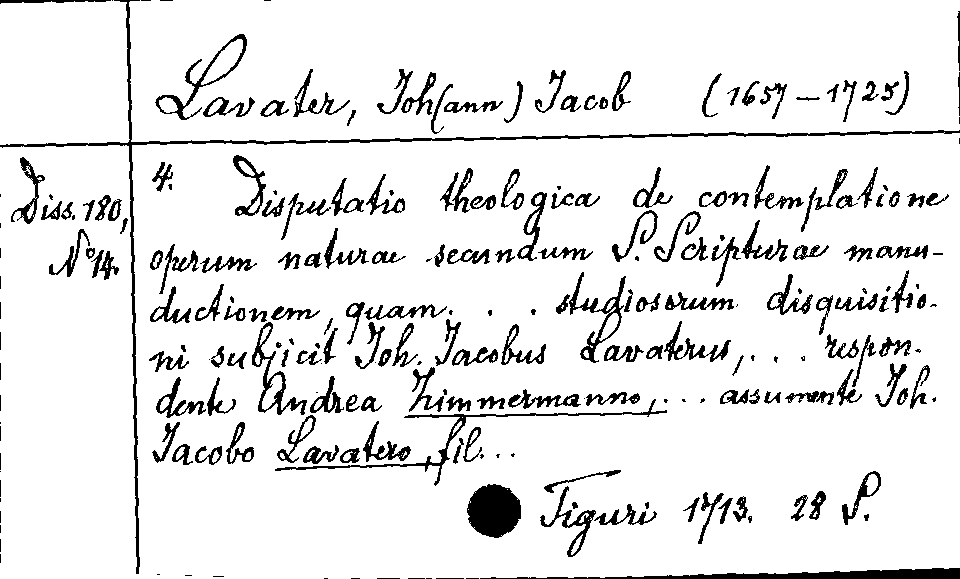 Lavater, Joh(ann) Jacob (1657–1725)
Diss. 180,
No 14.
4. Disputatio theologica de contemplatione
operum naturae secundum S. Scripturae manu-
ductionem, quam . . . studiosorum disquisitio-
ni subjicit Joh. Jacobus Lavaterus, . . . respon-
dente Andrea Zimmermanno, . . . assumente Joh.
Jacobo Lavatero, fil. . .
Tiguri 1713. 28 S.